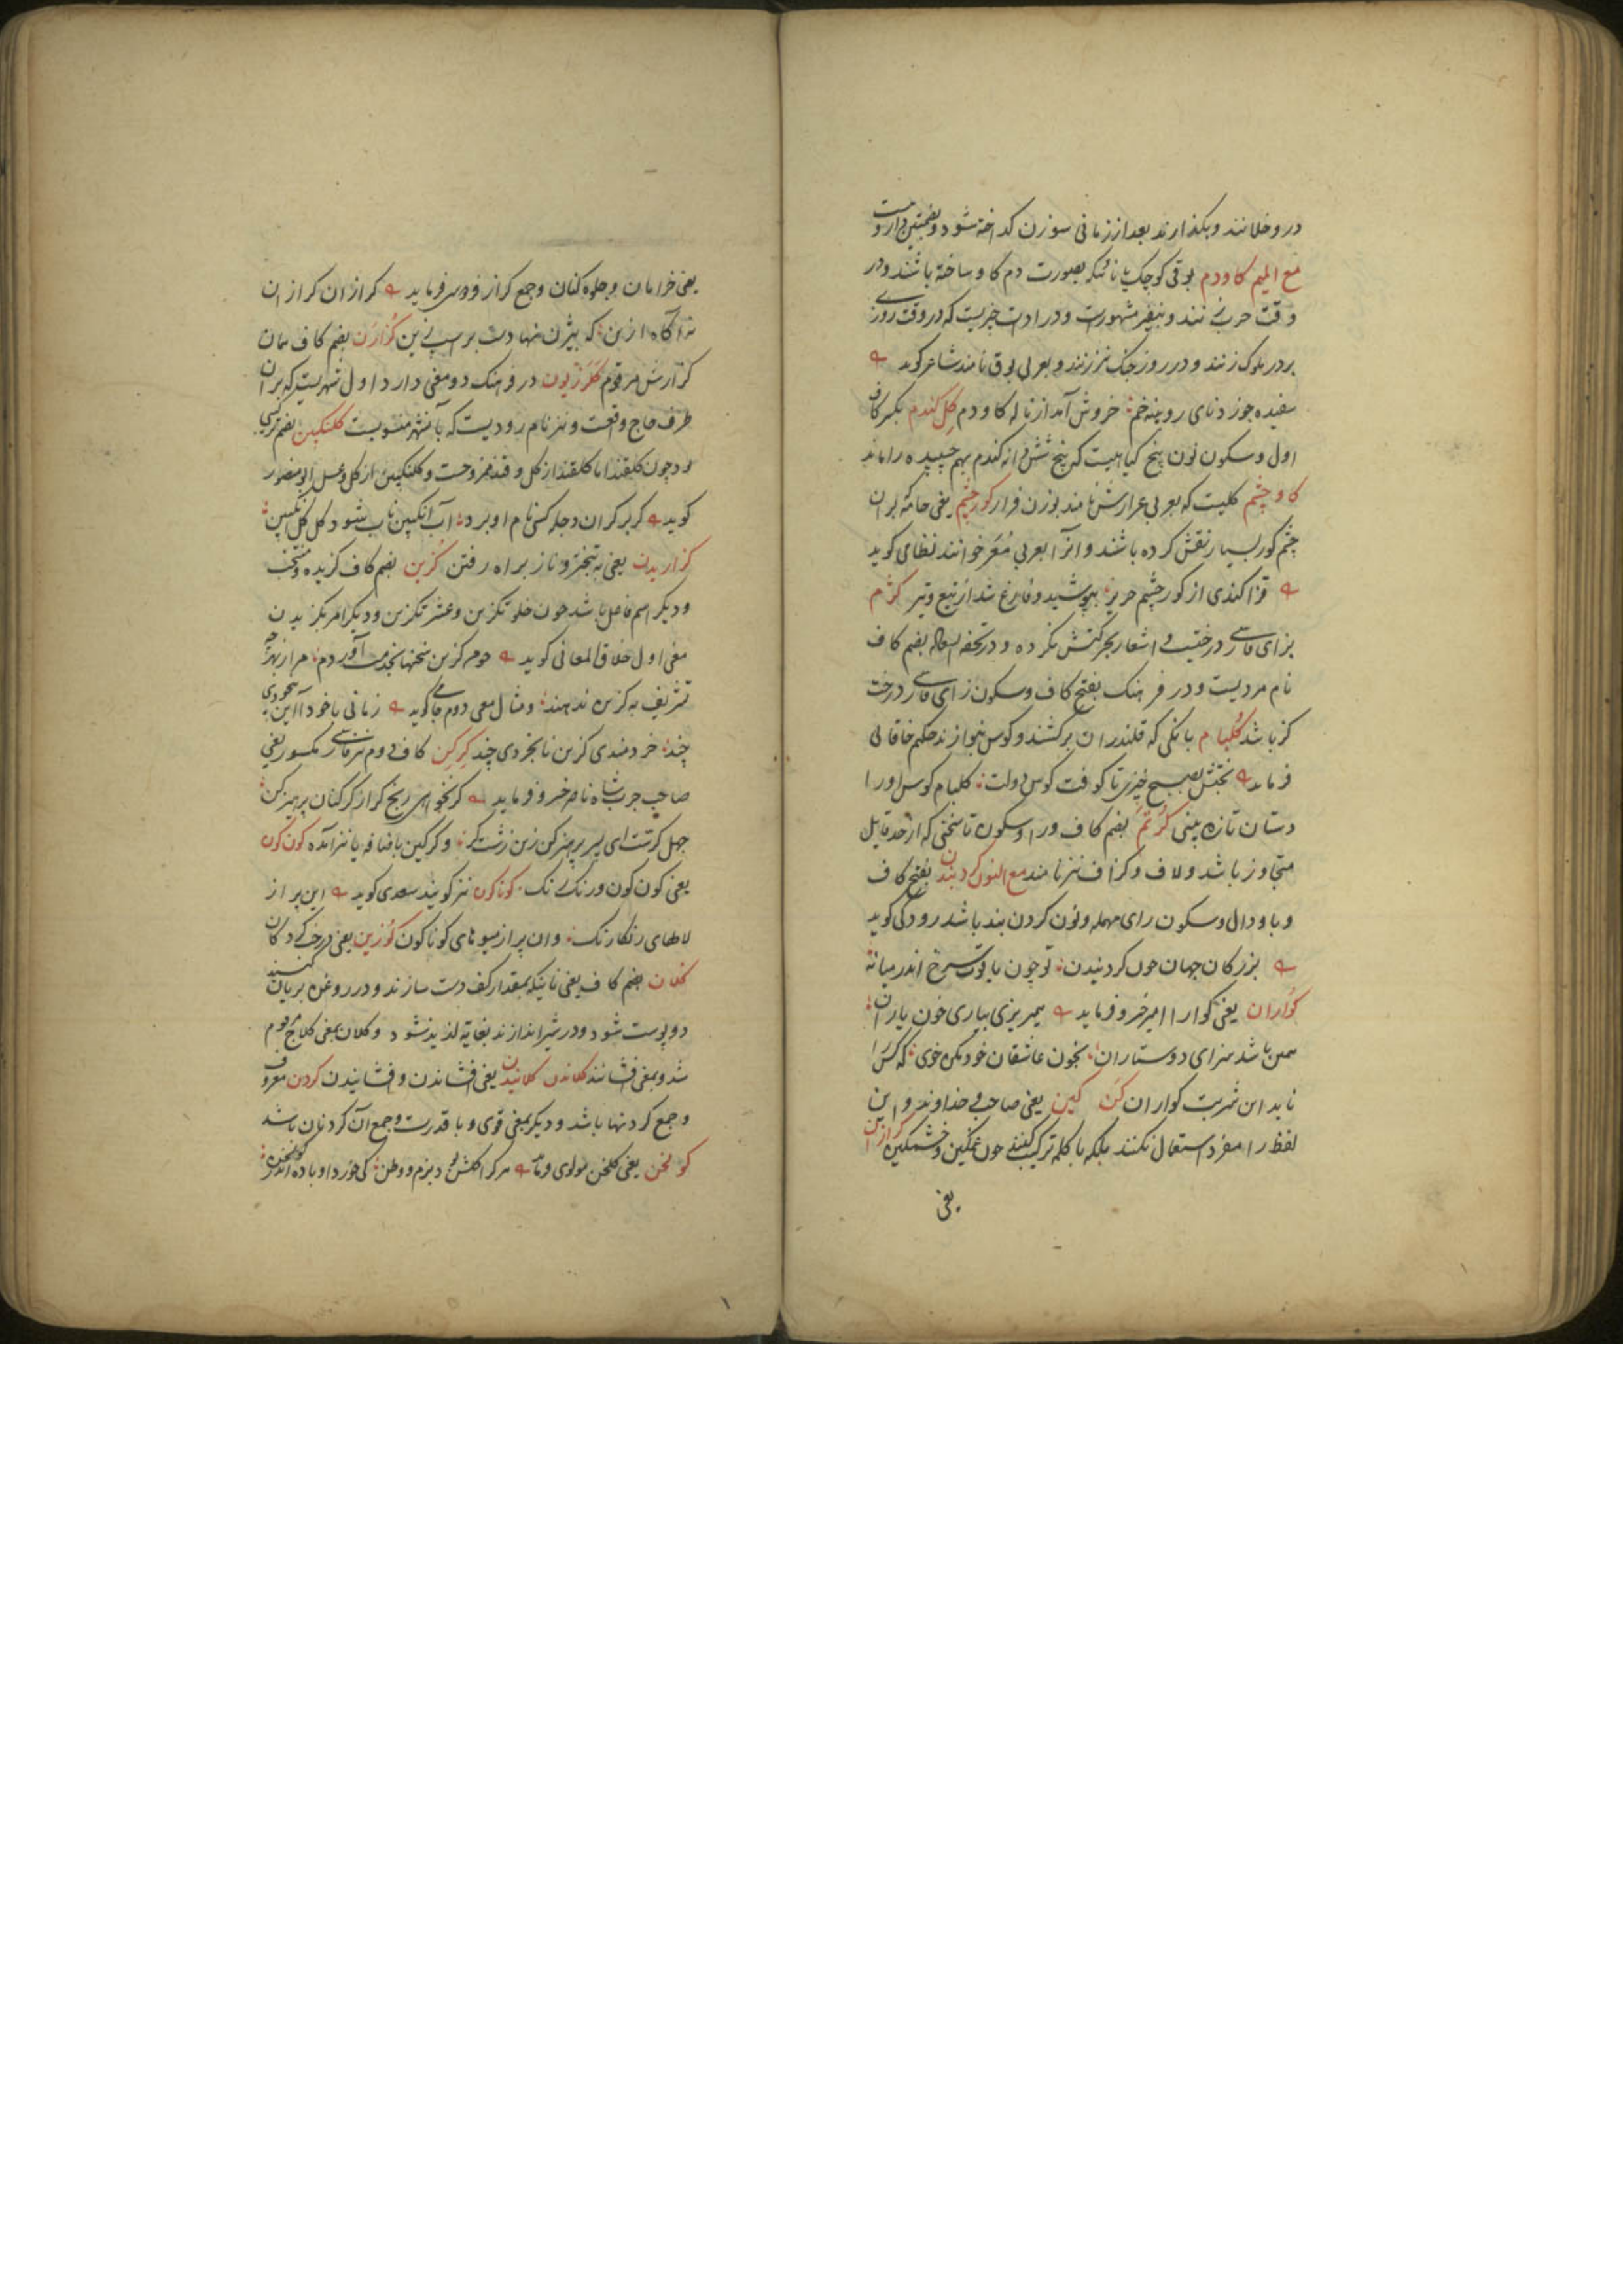 در و خلانند و بکذارند بعد از زمانی سوزن کداخته شود و بفتحتین
مع المیم کاودم بوقی کوچک یا نائیکه بصورت دم کاو ساخته باشند و در
وقت حرب زنند و بنفیر مشهورست و در ادات چیزیست که در وقت روزی
بر در ملوک زنند و در روز جنک نیز زنند و بعربی بوق نامند شاعر کوید
سفیده جو زد نای رویینه خم خروش آمد از ناله کاودم کل کندم بکسر کاف
اول و سکون نون بیخ کیاهیست که پنج شش دانه کندم بهم چسپیده را ماند
کاوچشم کلیست که بعربی عرارش نامند بوزن فرار کورچشم یعنی جامه که بران
چشم کور بسیار نقش کرده باشند و انرا بعربی معرخوانند نظامی کوید
قزاکندی از کورچشم حریر بپوشید و فارغ شد از تیغ و تیر کزم
بزای فارسی درختیست اشعار بجرکتش نکرده و در تحفه السعاده بضم کاف
نام مردیست و در فرهنک بفتح کاف و سکون زای فارسی درخت
کز باشد کلبام بانکی که قلندران برکشند و کوس نوازند حکیم خاقانی
فرماید بختش بصبح خیزی تا کوفت کوس دولت کلبام کوس او را
دستان تازه بینی کرتم بضم کاف و را و سکون تا سخنی که از حد قایل
متجاوز باشد و لاف و کزاف نیز نامند مع النون کردبندن بفتح کاف
و با و دال و سکون رای مهمله و نون کردن بند باشد رودکی کوید
بزرکان جهان چون کردبندن تو چون یاقوت سرخ اندر میانه
کواران یعنی کوارا امیر خسرو فرماید همی ریزی بیاری خون یاران
همین باشد سزای دوستاران بخون عاشقان خود مکن خوی که کس را
ناید این شربت کواران کن کین یعنی صاحب و خداوند و این
لفظ را مفرد استعمال نکنند بلکه با کلمه ترکیب کنند چون غمکین و خشمکین کرازان
یعنی
یعنی خرامان و جلوه کنان و جمع کراز فردوسی فرماید کرازان کرازان
نه آکاه ازین که بیژن نهادست بر اسپ زین کزارن بضم کاف همان
کزارش مرقوم کرزیون در فرهنک دو معنی دارد اول شهریست که بران
طرف حاج واقعست و نیز نام رودیست که بآنشهر منسوبست کلنکبین بضم
و چون کلقند اما کلقند از کل و قند ممزوجست و کلنکبین از کل و عسل ابو منصور
کوید کر بر کران دجله کسی نام او برد آب انکبین ناب شود کل کل انکبین
کرازیدن یعنی به تبختر و ناز براه رفتن کزین بضم کاف کزیده و منتخب
و دیکر اسم فاعل باشد چون خلوتکزین و عشرتکزین و دیکر امر بکزیدن
معنی اول خلاق المعانی کوید چو من کزین سخنها بخدمت آوردم مرا ز بهر چه
تشریف به کزین ندهند و مثال معنی دوم جامی کوید زمانی باخود آ این بیخودی
چند خردمندی کزین نابخردی چند کرکین کاف دوم نیز فارسی مکسور یعنی
صاحب جرب شاه ناصر خسرو فرماید کر نخواهی رنج کر از کرکنان پرهیز کن
جهل کرست ای پسر پرهیز کن زین زشت کر و کرکین باضافه یا نیز آمده کون کون
یعنی کون کون و رنک رنک کوناکون نیز کویند سعدی کوید این پر از
لالهای رنکارنک وان پر از میوهای کوناکون کوزین یعنی درخت
کلان بضم کاف یعنی نانیکه بمقدار کف دست سازند و در روغن بریان کنند
دو پوست شود و در شیر اندازند بغایة لذیذ شود و کلان بمعنی کلاج مرقوم
شد و بمعنی افشانند کلاندن کلانیدن یعنی افشاندن و افشانیدن کردن معروف
و جمع کرد تنها باشد و دیکر بمعنی قوی و با قدرت و جمع آن کردنان باشد
کولخن یعنی کلخن مولوی فرماید هر کرا کلشن بود بزم و وطن کی خورد او باده اندر کولخن